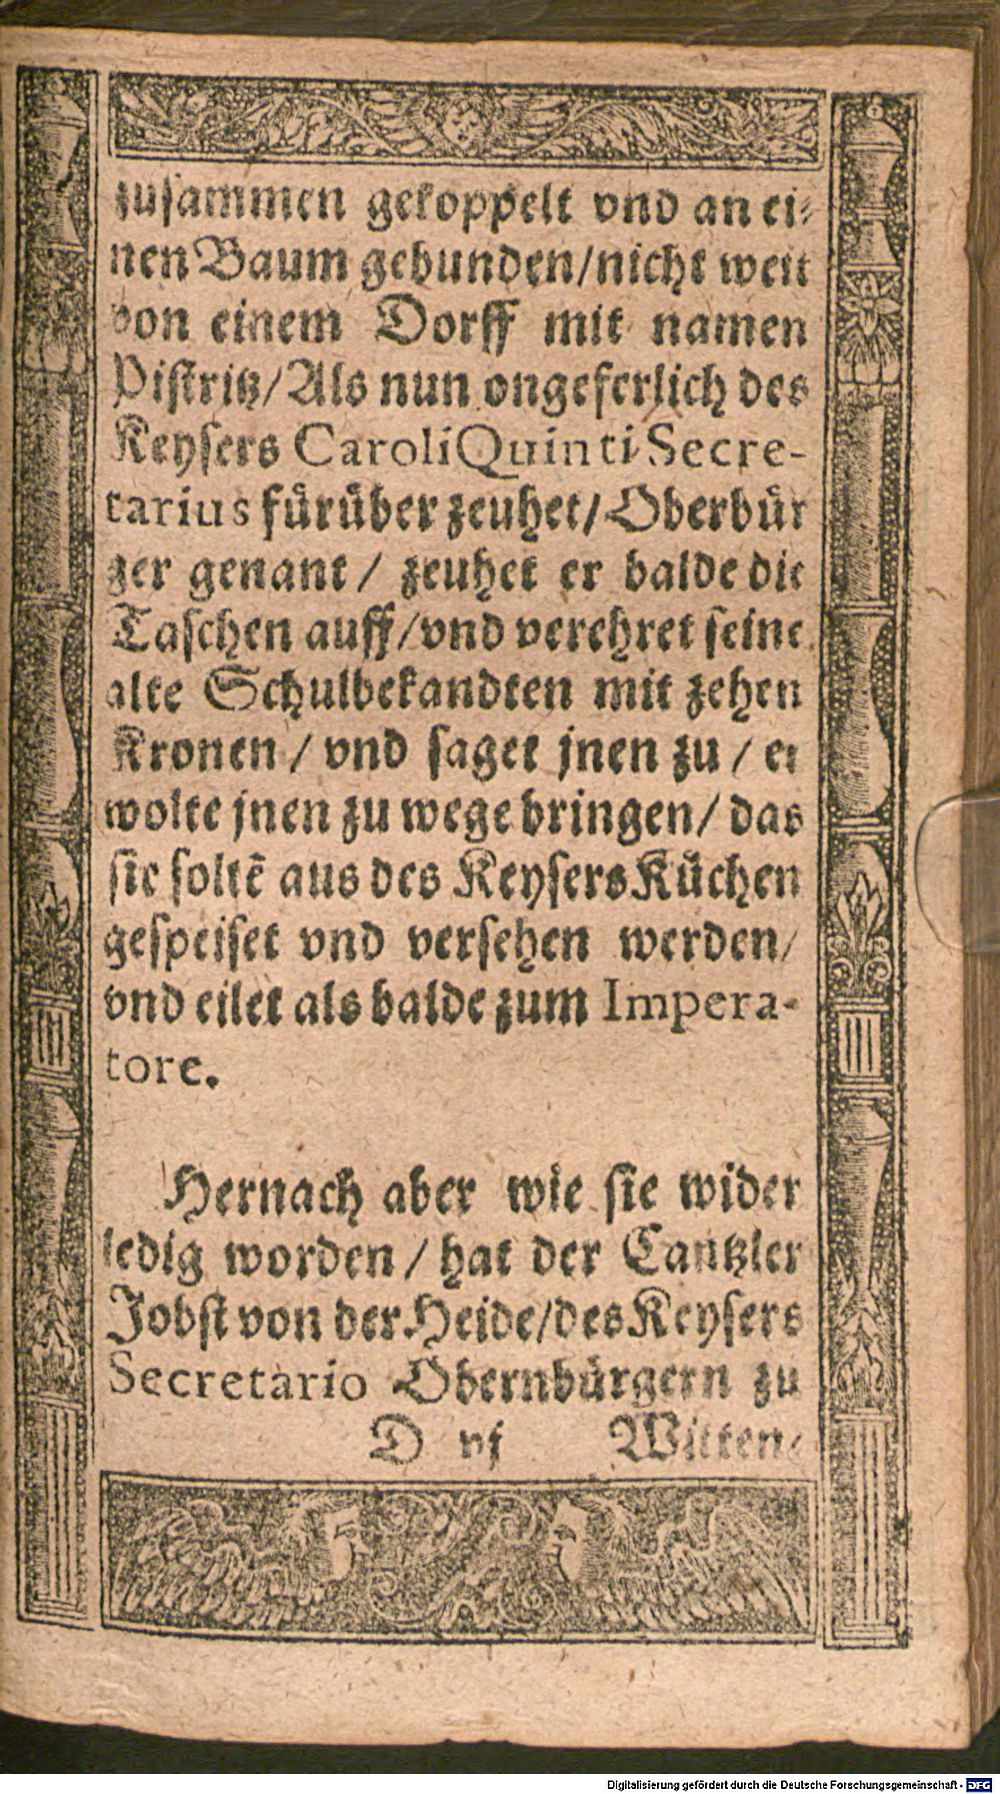 zusammen gekoppelt vnd an ei⸗
nen Baum gebunden/nicht weit
von einem Dorff mit namen
Pistritz/Als nun ongeferlich des
Keysers Caroli Quinti Secre-
tarius fürüber zeuhet/Oberbür
ger genant / zeuhet er balde die
Taschen auff/vnd verehret seine
alte Schulbekandten mit zehen
Kronen / vnd saget jnen zu / er
wolte jnen zu wege bringen/ das
sie soltē aus des Keysers Küchen
gespeiset vnd versehen werden/
vnd eilet als balde zum Impera-
tore.
Hernach aber wie sie wider
ledig worden / hat der Cantzler
Jobst von der Heide/des Keysers
Secretario Obernbürgern zu
D vj Witten⸗
Digitalisierung gefördert durch die Deutsche Forschungsgemeinschaft - DFG